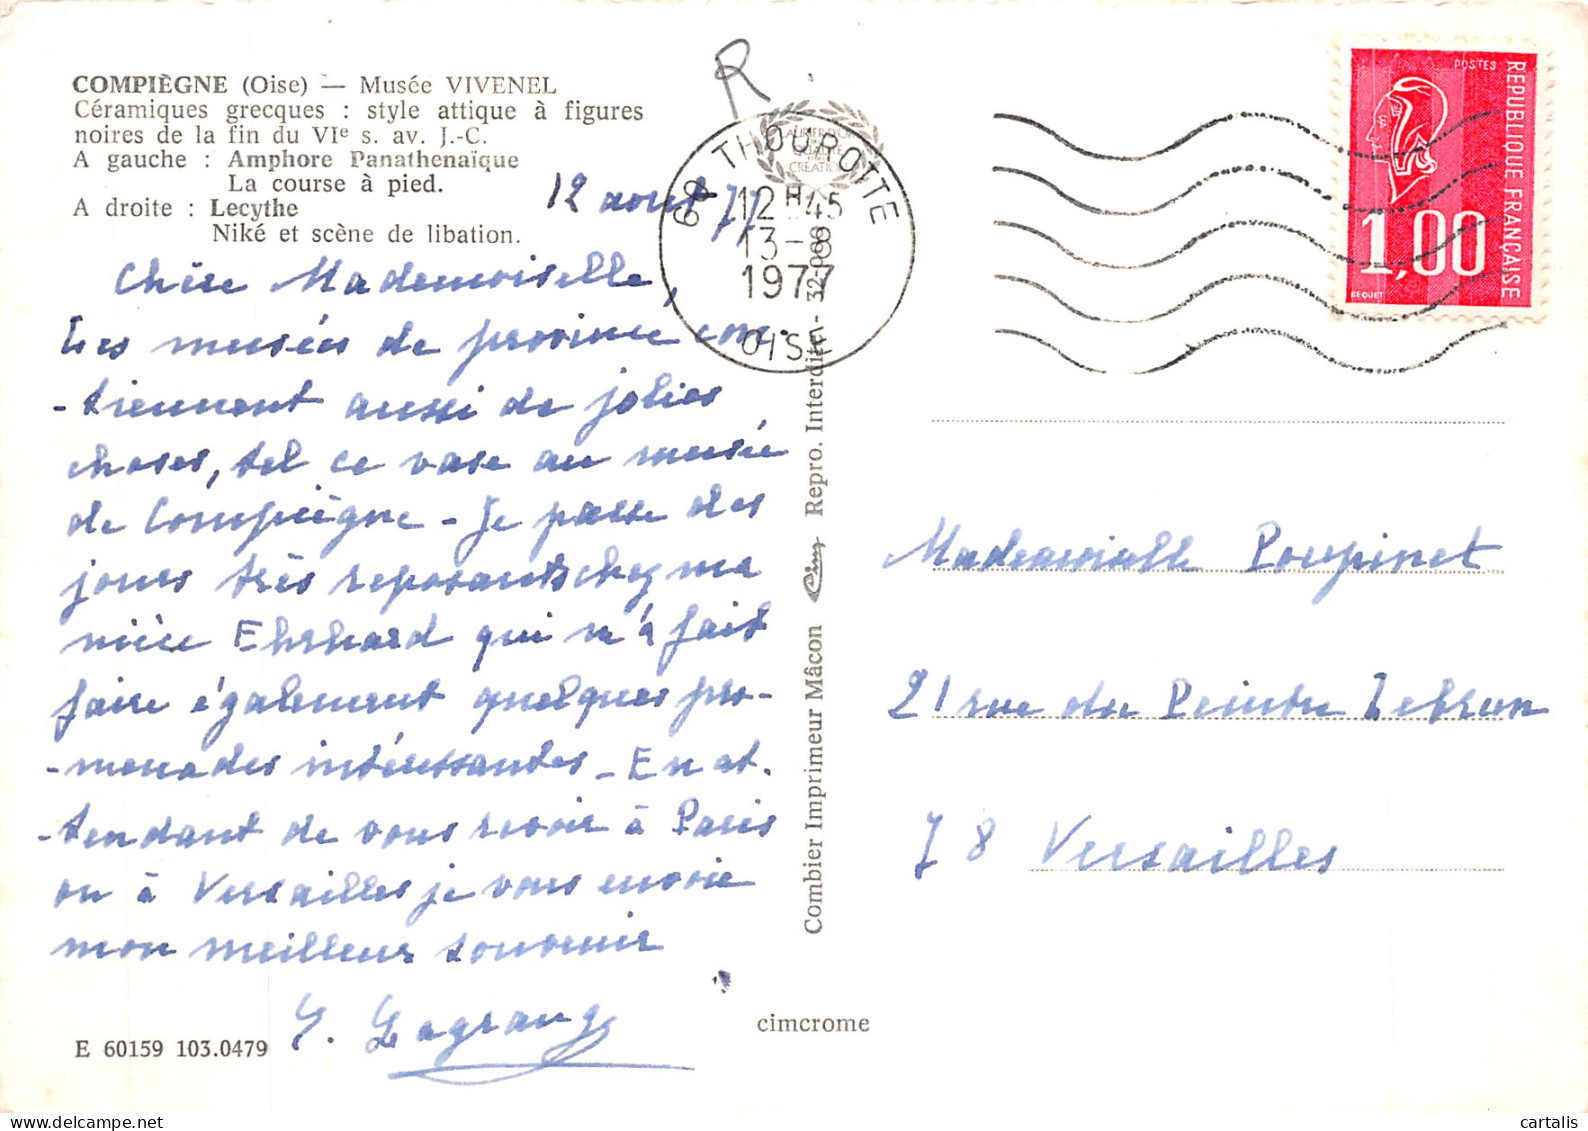 COMPIÈGNE (Oise) — Musée VIVENEL
Céramiques grecques : style attique à figures
noires de la fin du VIe s. av. J.-C.
A gauche : Amphore Panathenaïque
La course à pied.
A droite : Lecythe
Niké et scène de libation.
12 août 77
Chère Mademoiselle,
Les musées de province con-
-tiennent aussi de jolies
choses, tel ce vase au musée
de Compiègne - Je passe des
jours très reposants chez ma
nièce Ehrhard qui m'a fait
faire également quelques pro-
-menades intéressantes - En at.
-tendant de vous revoir à Paris
ou à Versailles je vous envoie
mon meilleur souvenir
Y. Lagrang
E 60159 103.0479
R
60 THOUROTTE
12 H 45
13-8
1977
OISE
LAURIER D'OR
QUALITÉ
CREATION
Combier Imprimeur Mâcon Cim Repro. Interdite
cimcrome
POSTES
REPUBLIQUE FRANÇAISE
1,00
BEQUET
Mademoiselle Poupinet
21 rue du Peintre Lebrun
78 Versailles
delcampe.net
cartalis